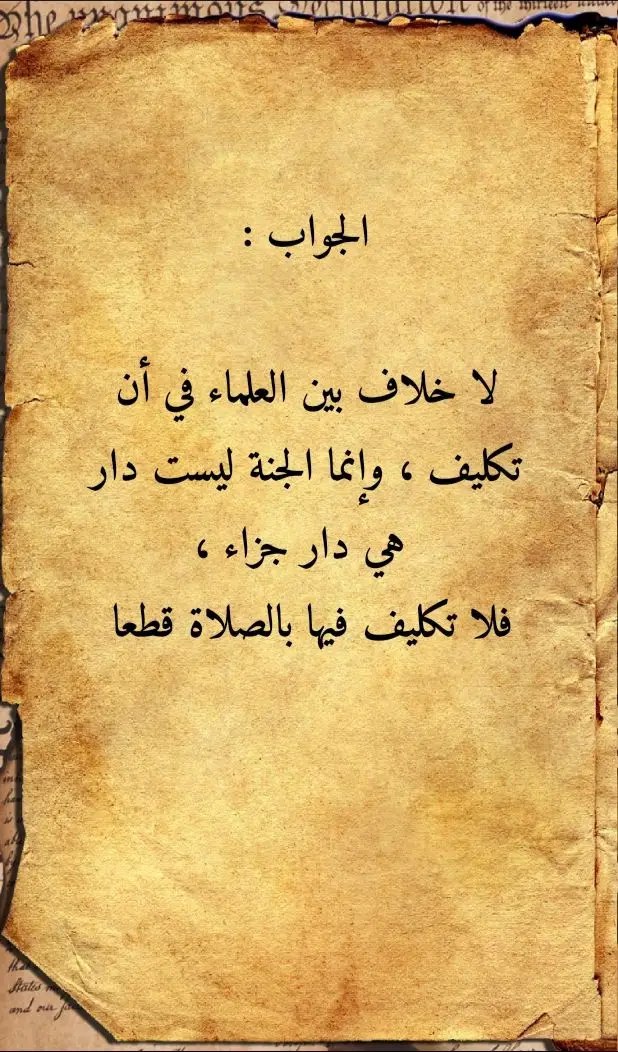 The unanimous Declaration of the thirteen united
الجواب :
لا خلاف بين العلماء في أن
تكليف ، وإنما الجنة ليست دار
هي دار جزاء ،
فلا تكليف فيها بالصلاة قطعا
that
States
and our